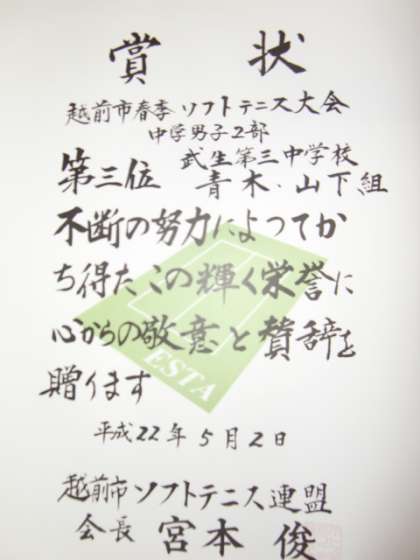 賞状
越前市春季ソフトテニス大会
中学男子2部
武生第三中学校
第三位 青木・山下組
不断の努力によってか
ち得たこの輝く栄誉に
心からの敬意と賛辞を
贈ります
ESTA
平成22年5月2日
越前市ソフトテニス連盟
会長 宮本 俊